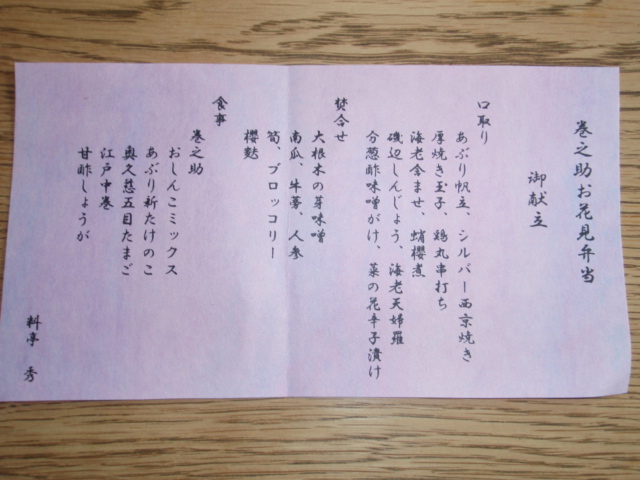 巻之助お花見弁当
御献立
口取り
あぶり帆立、シルバー西京焼き
厚焼き玉子、鶏丸串打ち
海老含ませ、蛸櫻煮
磯辺しんじょう、海老天婦羅
分葱酢味噌がけ、菜の花辛子漬け
焚合せ
大根木の芽味噌
南瓜、牛蒡、人参
筍、ブロッコリー
櫻麩
食事
巻之助
おしんこミックス
あぶり新たけのこ
奥久慈五目たまご
江戸中巻
甘酢しょうが
料亭 秀